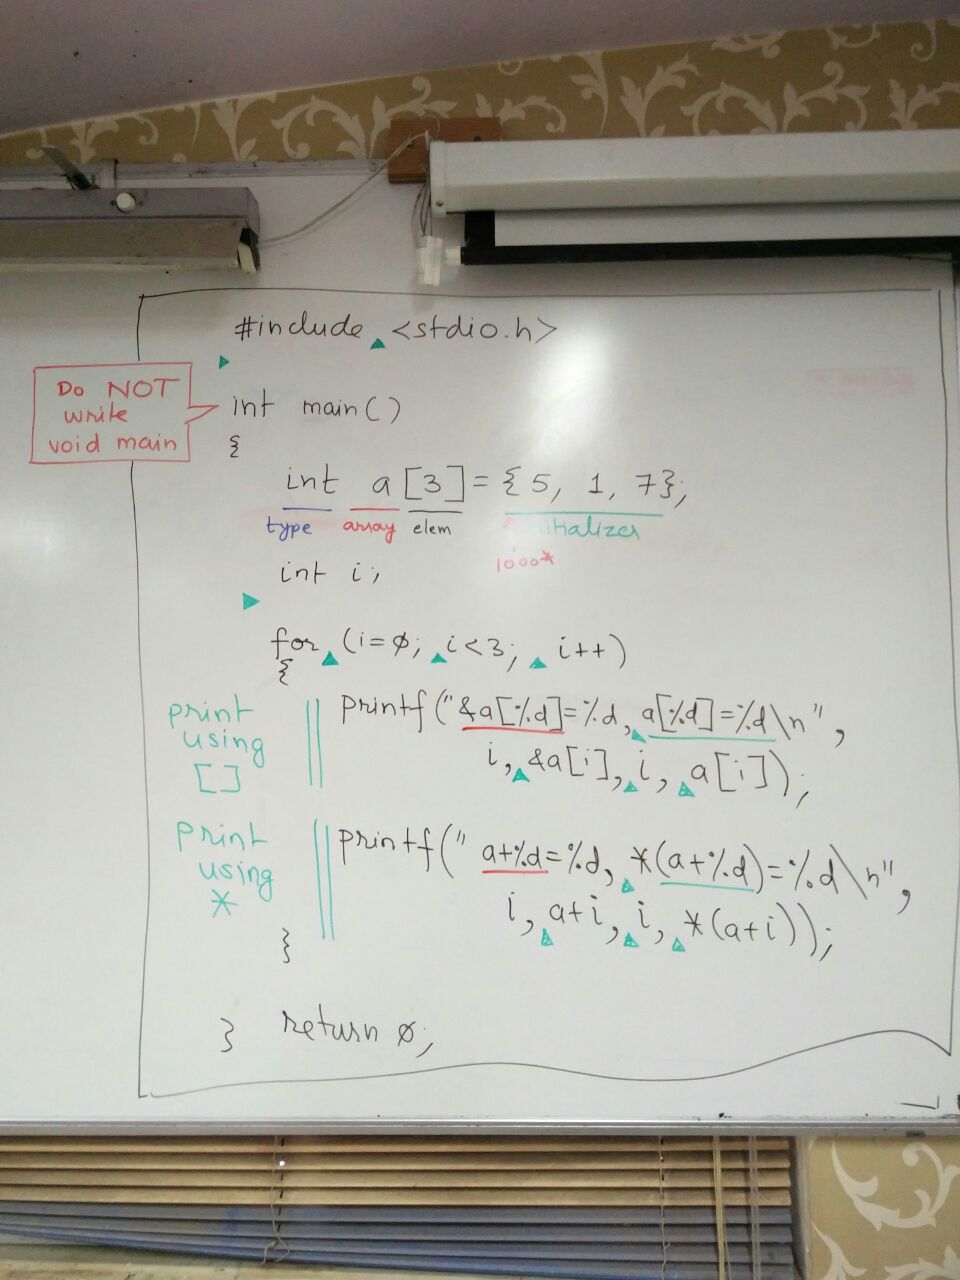 #include <stdio.h>
Do NOT
write
void main
int main()
{
int a[3] = {5, 1, 7};
type array elem
1000*
int i;
for (i=0; i<3; i++)
{
print
using
[]
printf("&a[%d]=%d, a[%d]=%d\n",
i, &a[i], i, a[i]);
print
using
*
printf("a+%d=%d, *(a+%d)=%d\n",
i, a+i, i, *(a+i));
}
return 0;
}